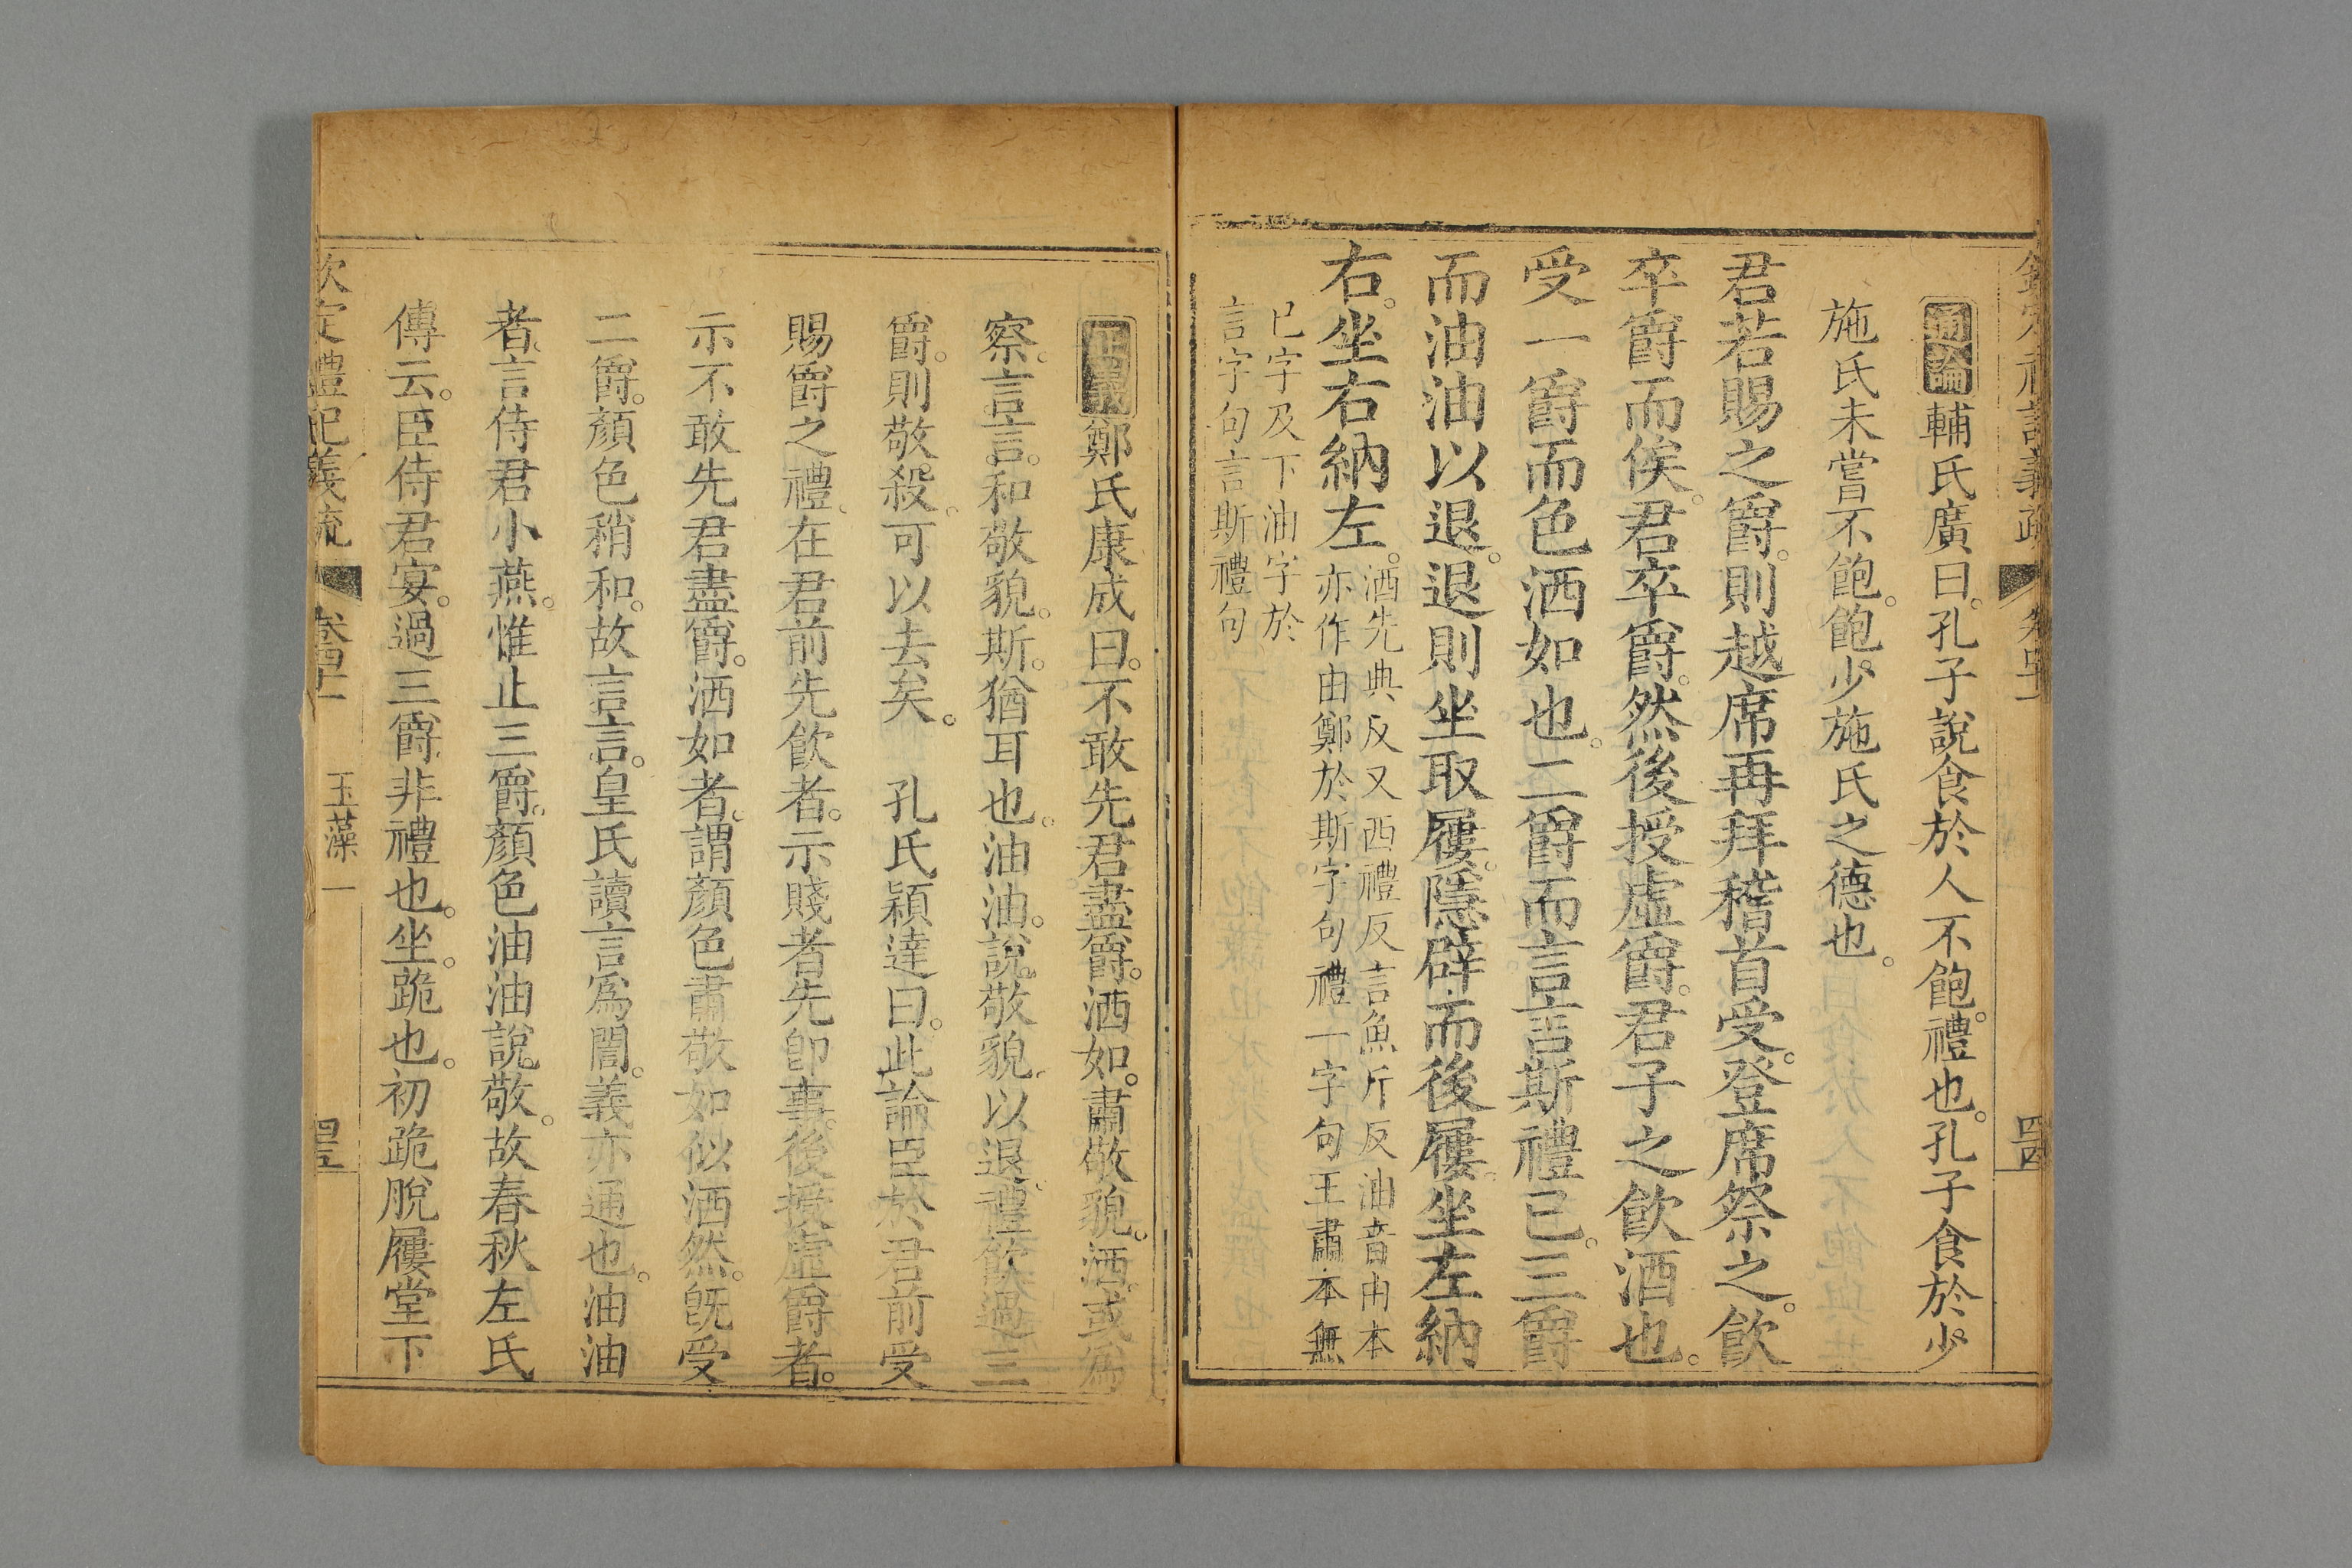 欽定禮記義疏 卷四十一 四十四
通論輔氏廣曰。孔子說食於人不飽。禮也。孔子食於少
施氏未嘗不飽。飽少施氏之德也。
君若賜之爵。則越席再拜稽首受。登席祭之。飲
卒爵而俟。君卒爵。然後授虛爵。君子之飲酒也。
受一爵而色洒如也。二爵而言言斯禮已。三爵
而油油以退。退則坐取屨。隱辟而後屨。坐左納
右。坐右納左。
洒先典反又西禮反言魚斤反油音由本
亦作由鄭於斯字句禮一字句王肅本無
已字及下油字於
言字句言斯禮句
正義鄭氏康成曰。不敢先君盡爵。洒如。肅敬貌。洒。或為
察。言言。和敬貌。斯。猶耳也。油油。說敬貌。以退。禮飲過三
爵。則敬殺。可以去矣。 孔氏穎達曰。此論臣於君前受
賜爵之禮。在君前先飲者。示賤者先卽事。後授虛爵者。
示不敢先君盡爵。洒如者。謂顏色肅敬如似洒然。旣受
二爵。顏色稍和。故言言。皇氏讀言爲誾。義亦通也。油油
者。言侍君小燕。惟止三爵。顏色油油說敬。故春秋左氏
傳云。臣侍君宴。過三爵非禮也。坐。跪也。初跪脫屨堂下
欽定禮記義疏 卷四十一 玉藻一 四十五